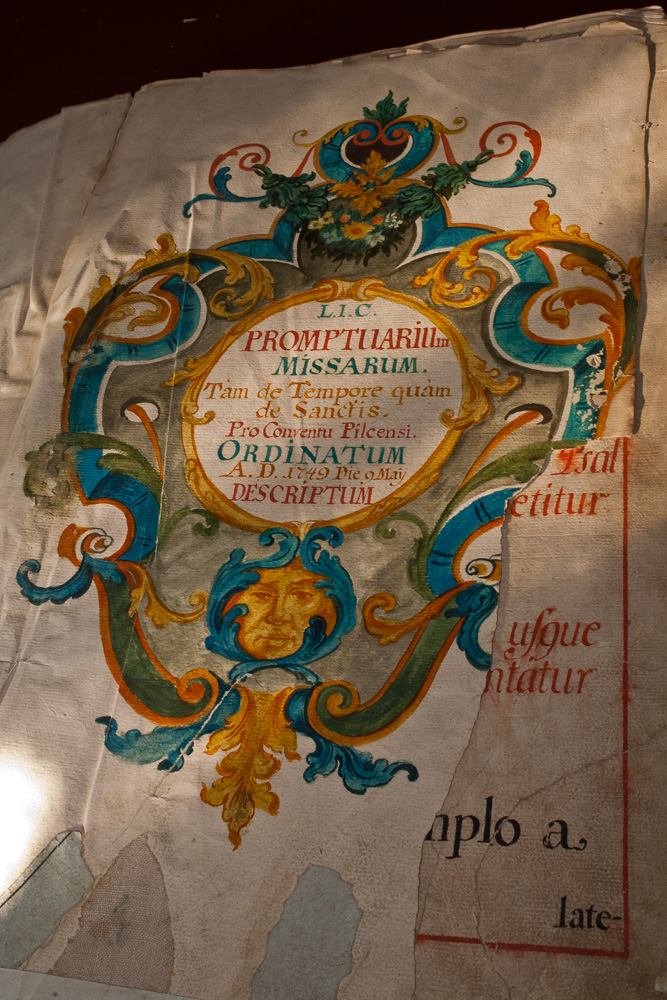 L.I.C.
PROMPTUARIUm
MISSARUM.
Tàm de Tempore quàm
de Sanctis.
Pro Conventu Pilcensi.
ORDINATUM
A. D. 1749 Die 9 Maÿ
DESCRIPTUM
Psal
etitur
usque
ntatur
mplo a
late-